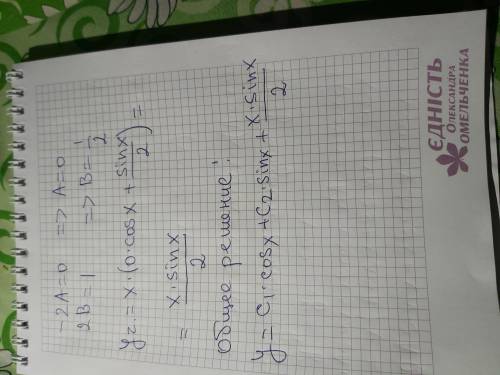 -2A=0 => A=0
2B=1 => B=1/2
yг.=x·(0·cosx+sinx/2)=
= x·sinx/2
общее решение:
y=C1·cosx+C2·sinx+x·sinx/2
ЄДНІСТЬ
Олександра
ОМЕЛЬЧЕНКА